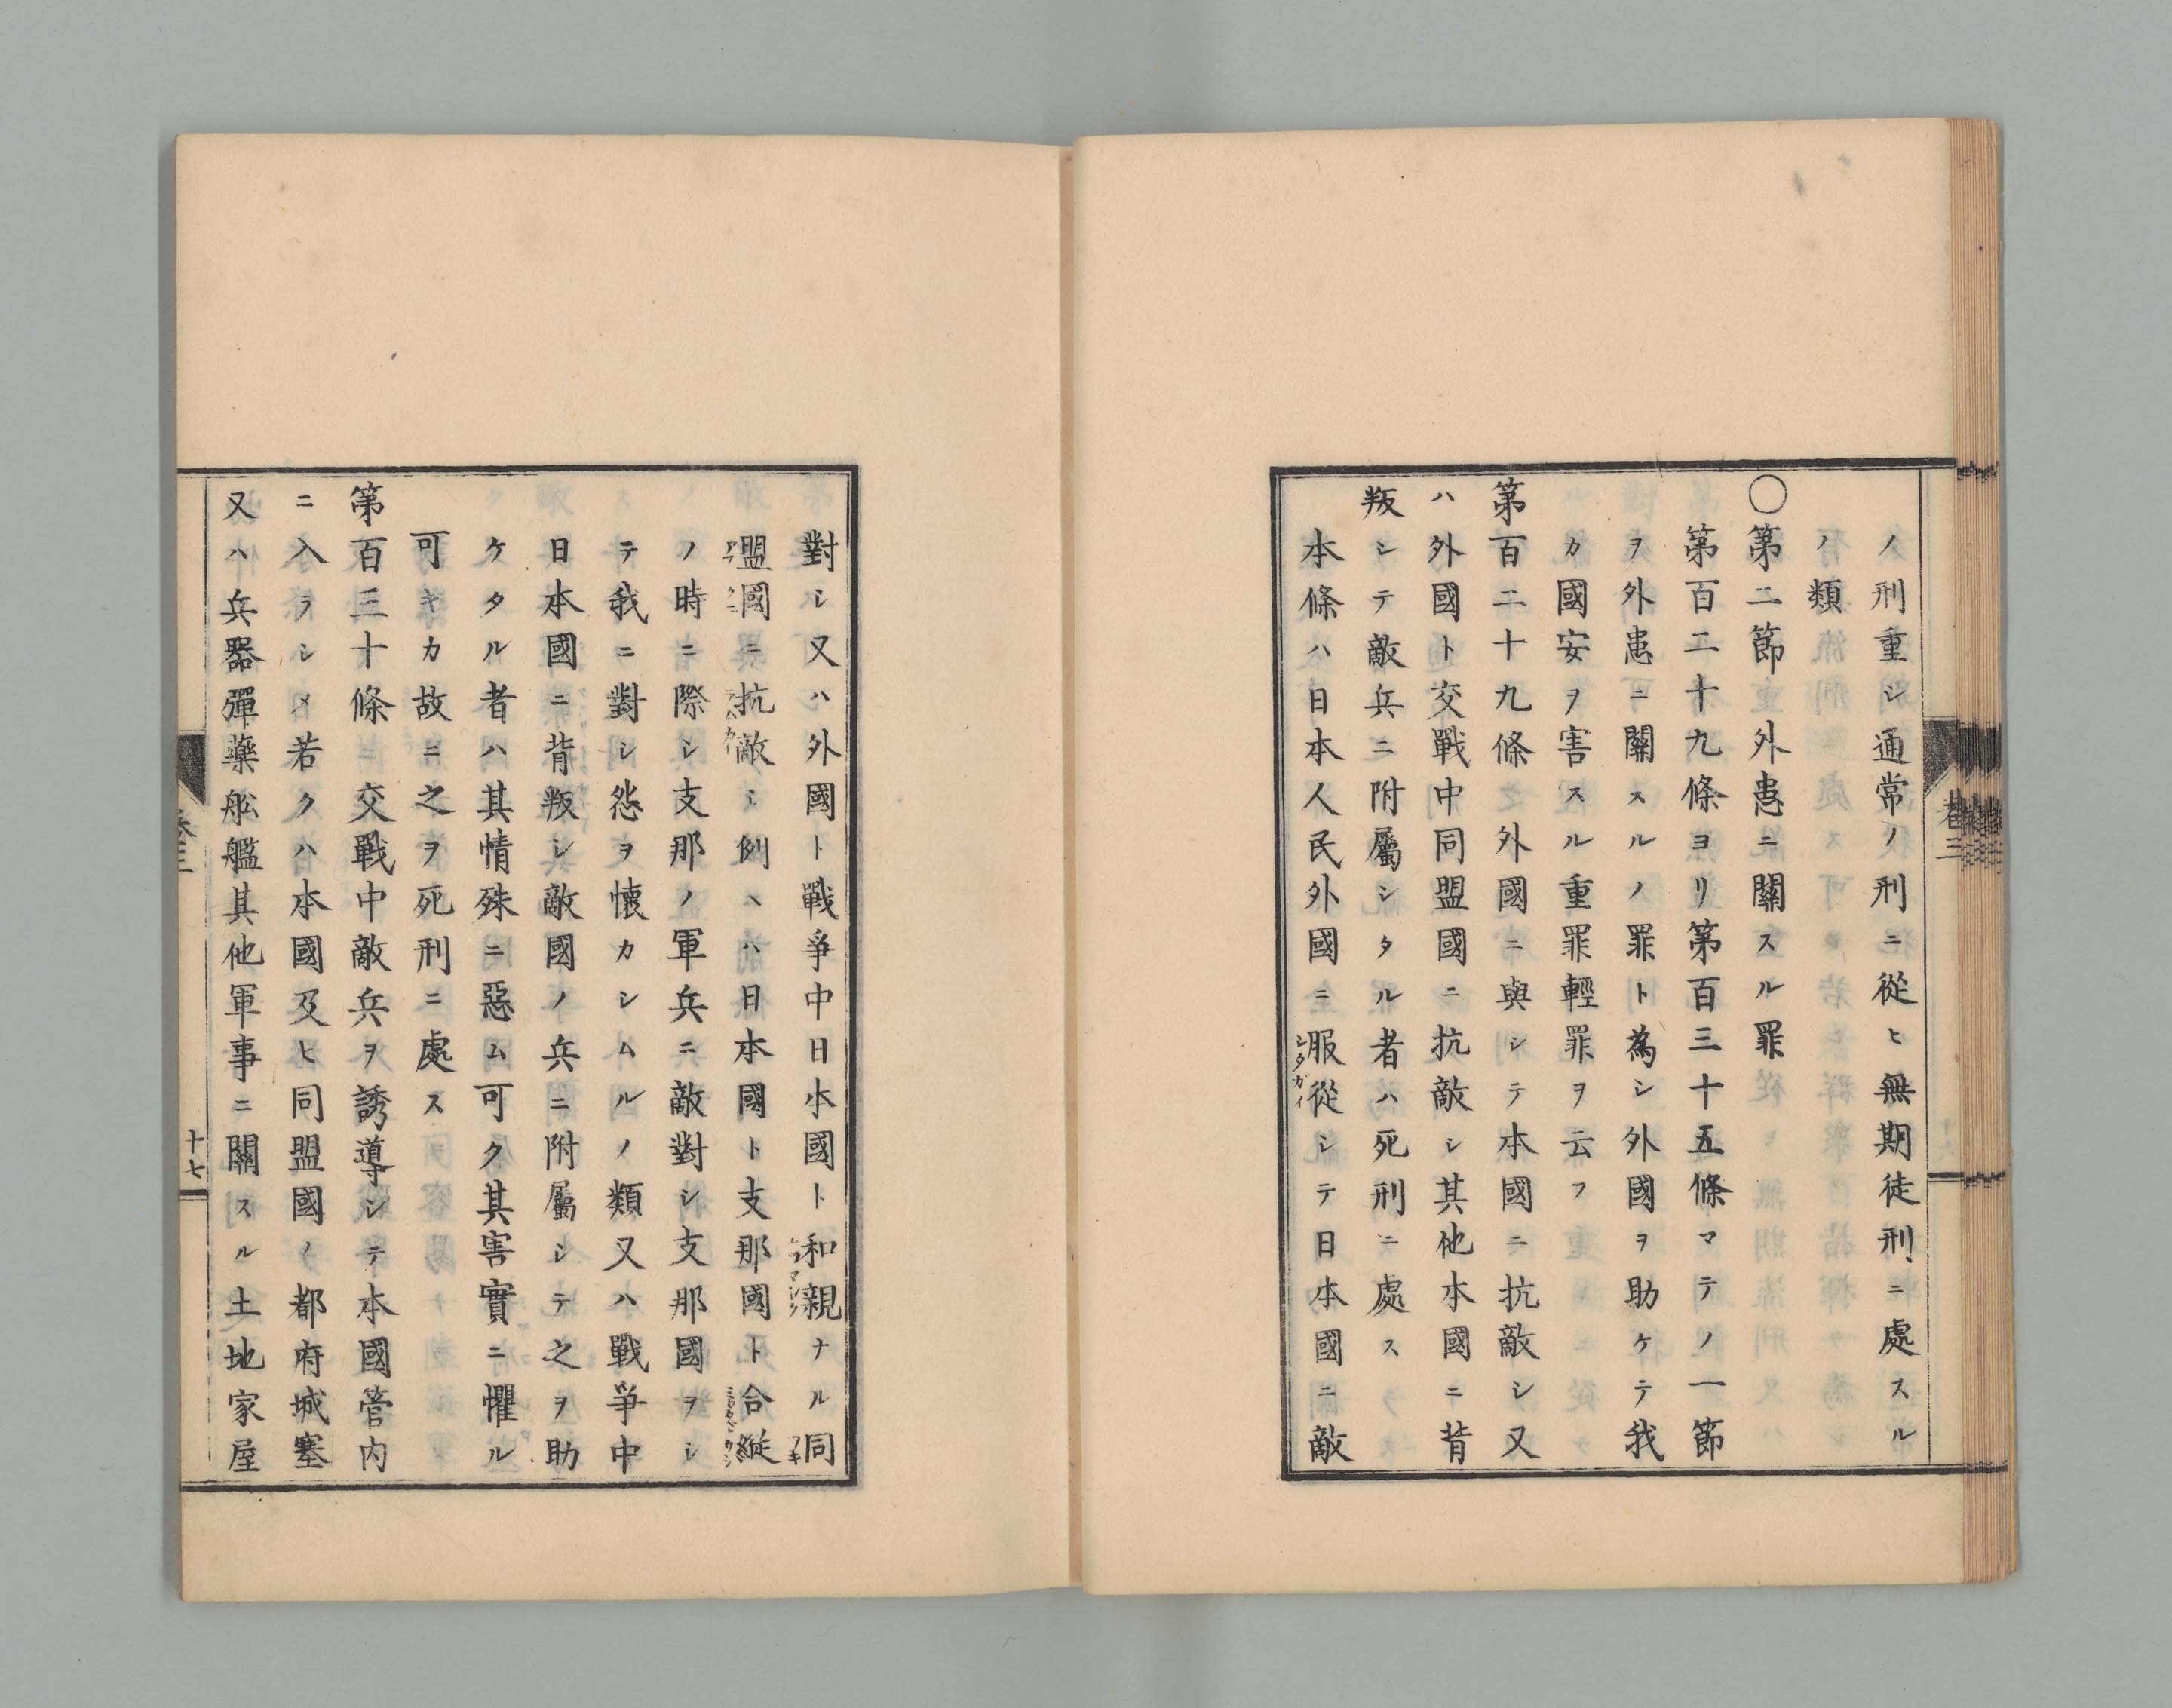 ノ刑重シ通常ノ刑ニ從ヒ無期徒刑ニ處スル
ノ類
〇第二節外患ニ關スル罪
第百二十九條ヨリ第百三十五條マテノ一節
ヲ外患ニ關スルノ罪ト為シ外國ヲ助ケテ我
カ國安ヲ害スル重罪輕罪ヲ云フ
第百二十九條外國ニ與シテ本國ニ抗敵シ又
ハ外國ト交戰中同盟國ニ抗敵シ其他本國ニ背
叛シテ敵兵ニ附屬シタル者ハ死刑ニ處ス
本條ハ日本人民外國ニ服從シテ日本國ニ敵
シタガイ
對シ又ハ外國ト戰爭中日本國ト和親ナル同
盟國ニ抗敵シ例ヘハ日本國ト支那國ト合縱
ノ時ニ際シ支那ノ軍兵ニ敵對シ支那國ヲシ
テ我ニ對シ怨ヲ懷カシムルノ類又ハ戰爭中
日本國ニ背叛シ敵國ノ兵ニ附屬シテ之ヲ助
ケタル者ハ其情殊ニ惡ム可ク其害實ニ懼ル
可キカ故ニ之ヲ死刑ニ處ス
第百三十條交戰中敵兵ヲ誘導シテ本國管内
ニ入ラシメ若クハ本國及ヒ同盟國ノ都府城塞
又ハ兵器彈藥船艦其他軍事ニ關スル土地家屋
卷三
十七